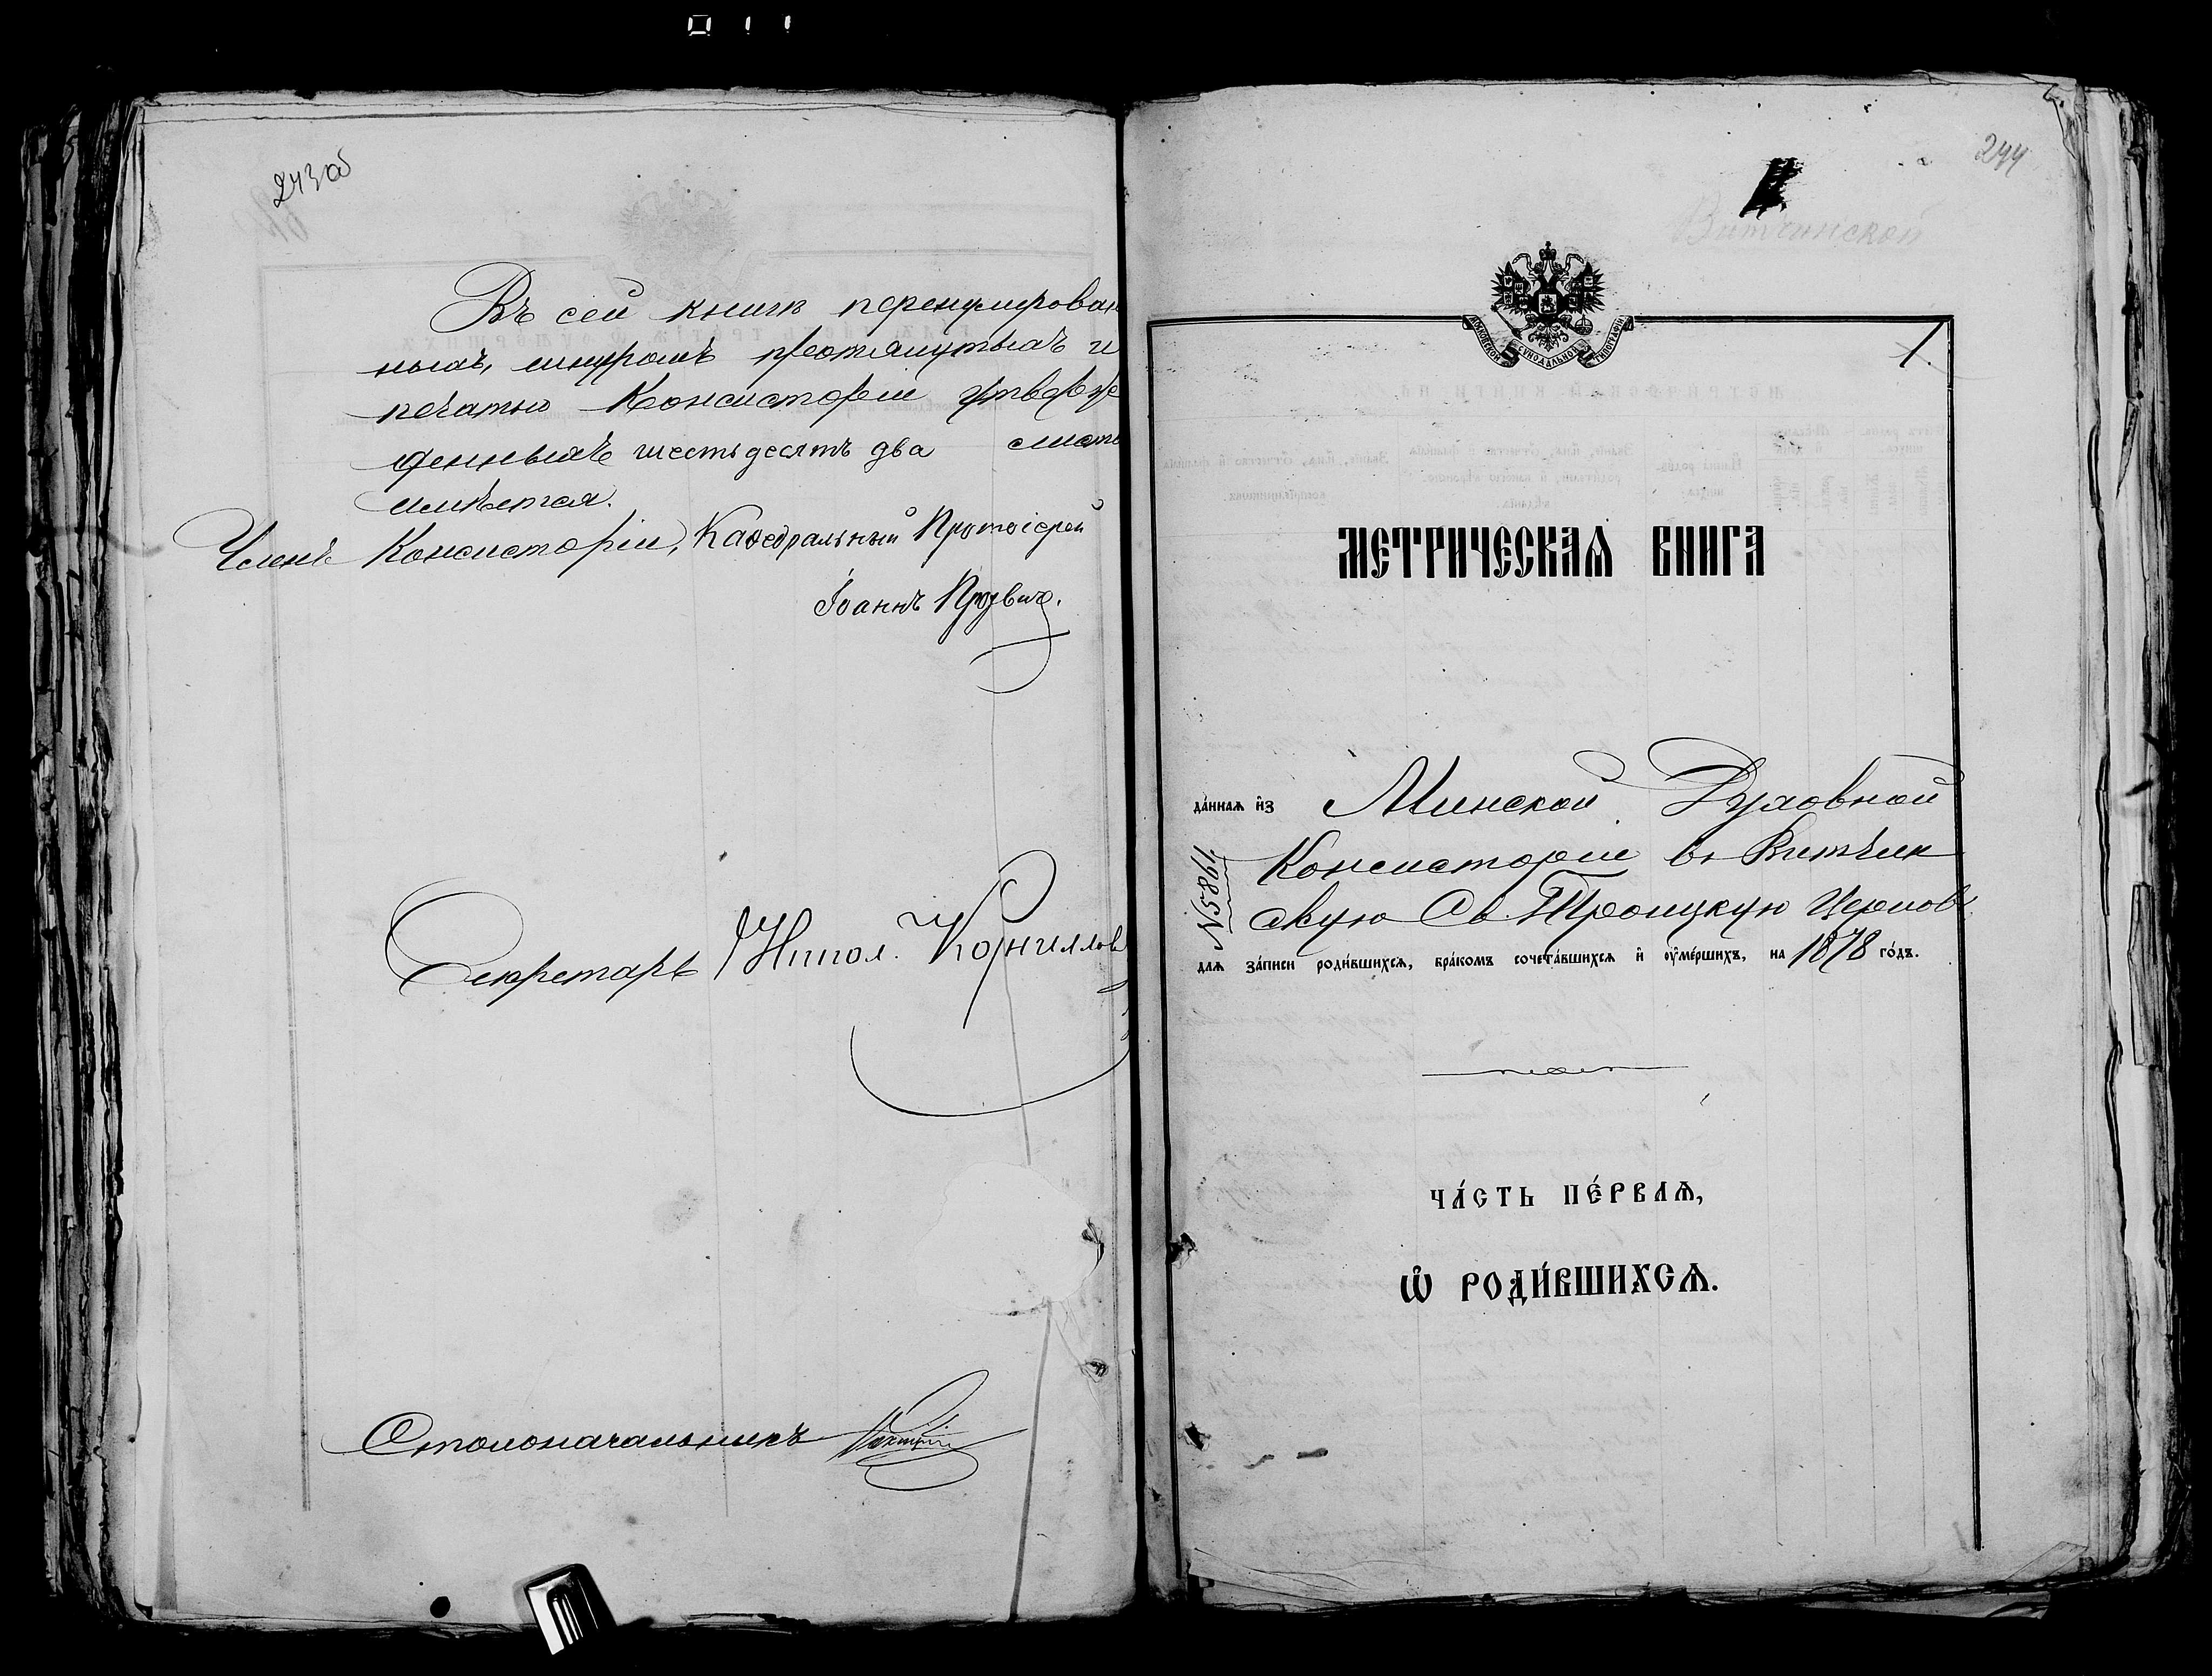 243об
Въ сей книгѣ перенумерован
ныхъ, шнуромъ протянутыхъ и
печатью Консисторіи утверж
денныхъ шестьдесятъ два листъ
имѣется.
Членъ Консисторіи, Каѳедральный Протоіерей
Іоаннъ
Секретарь Никол. Корниллов
Столоначальникъ
244
Витчинской
МОСКОВСКОЙ СУНОДАЛЬНОЙ ТИПОГРАФІИ
1.
МЕТРИЧЕСКАѦ КНИГА
да́ннаѧ и҆з Минской Духовной
Консисторіи въ Витчин
скую Св. Троицкую Церковь
№ 5861.
длѧ за́писи роди́вшихсѧ, бра́комъ сочета́вшихсѧ и҆ ᲂу҆ме́ршихъ, на 1878 го́дъ.
ЧА́СТЬ ПЕ́РВАѦ,
Ѡ҆ РОДИ́ВШИХСѦ.